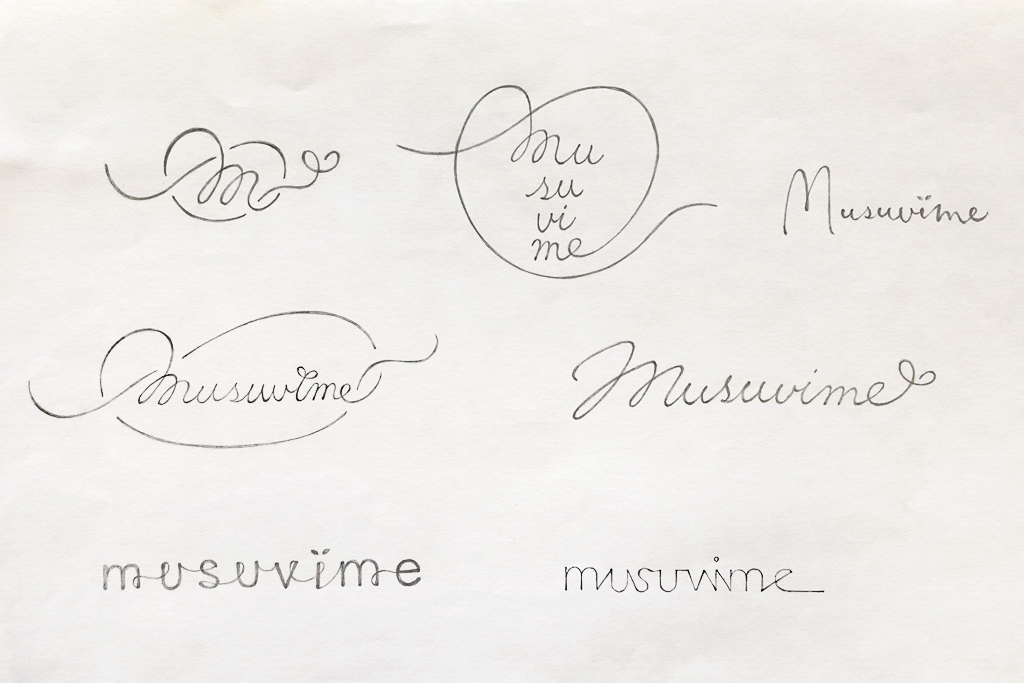 M
Mu
su
vi
me
Musuvïme
Musuvime
Musuvime
musuvïme
musuvime